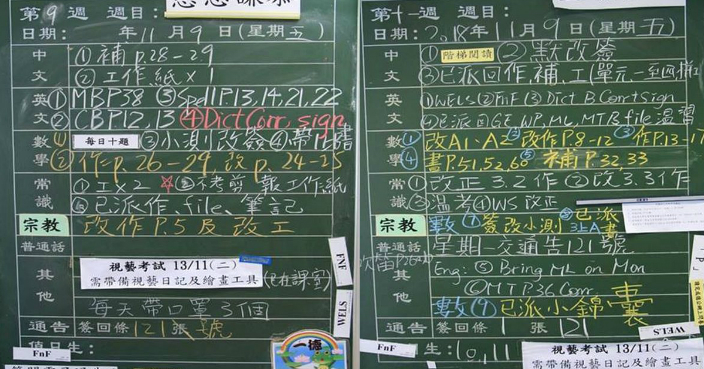 第9週 週目：
日期： 年11月9日(星期五)
中文 ①補P.28-29
②工作紙×1
英文 ①MBP38 ③Spell P.13,14,21,22
②CBP12,13 ④Dict Corr, sign
數學 ① 每日十題 ③小測改簽④帶
②作P.26-29, 改P.24-25
常識 ①工×2 ③ 報工作紙
④已派作, file, 筆記
宗教 改作P.5及改工
普通話
其他 視藝考試 13/11(二)
需帶備視藝日記及繪畫工具 (已在課室)
每天帶口罩3個
通告 簽回條121張號
值日生：
FnF
FNF
WELS
一德
第十一週 週目：
日期：2018年11月9日(星期五)
中文 ①階梯閱讀 ②默改簽
③已派回作,補,工(單元一至四
英文 ①WELS ②FnF ③Dict 8 Corr+Sign
④已派回GE, WP, ML, MTB file 溫習
數學 ①改A1、A2 ②改作P.8-12 ③作P.13-17
④書P.51,52,60 ⑤補P.32,33
常識 ①改正3.2作 ②改3.3作
③溫考④WS改正
宗教 數⑦簽改小測 ⑧已派3LA書
普通話 星期一交通告121號
其他 Eng: ⑤Bring ML on Mon
⑥MTP36 Corr.
數⑨已派小錦囊
通告 簽回條 1 張 121
生：10,11
FnF
WELS
視藝考試 13/11(二)
需帶備視藝日記及繪畫工具